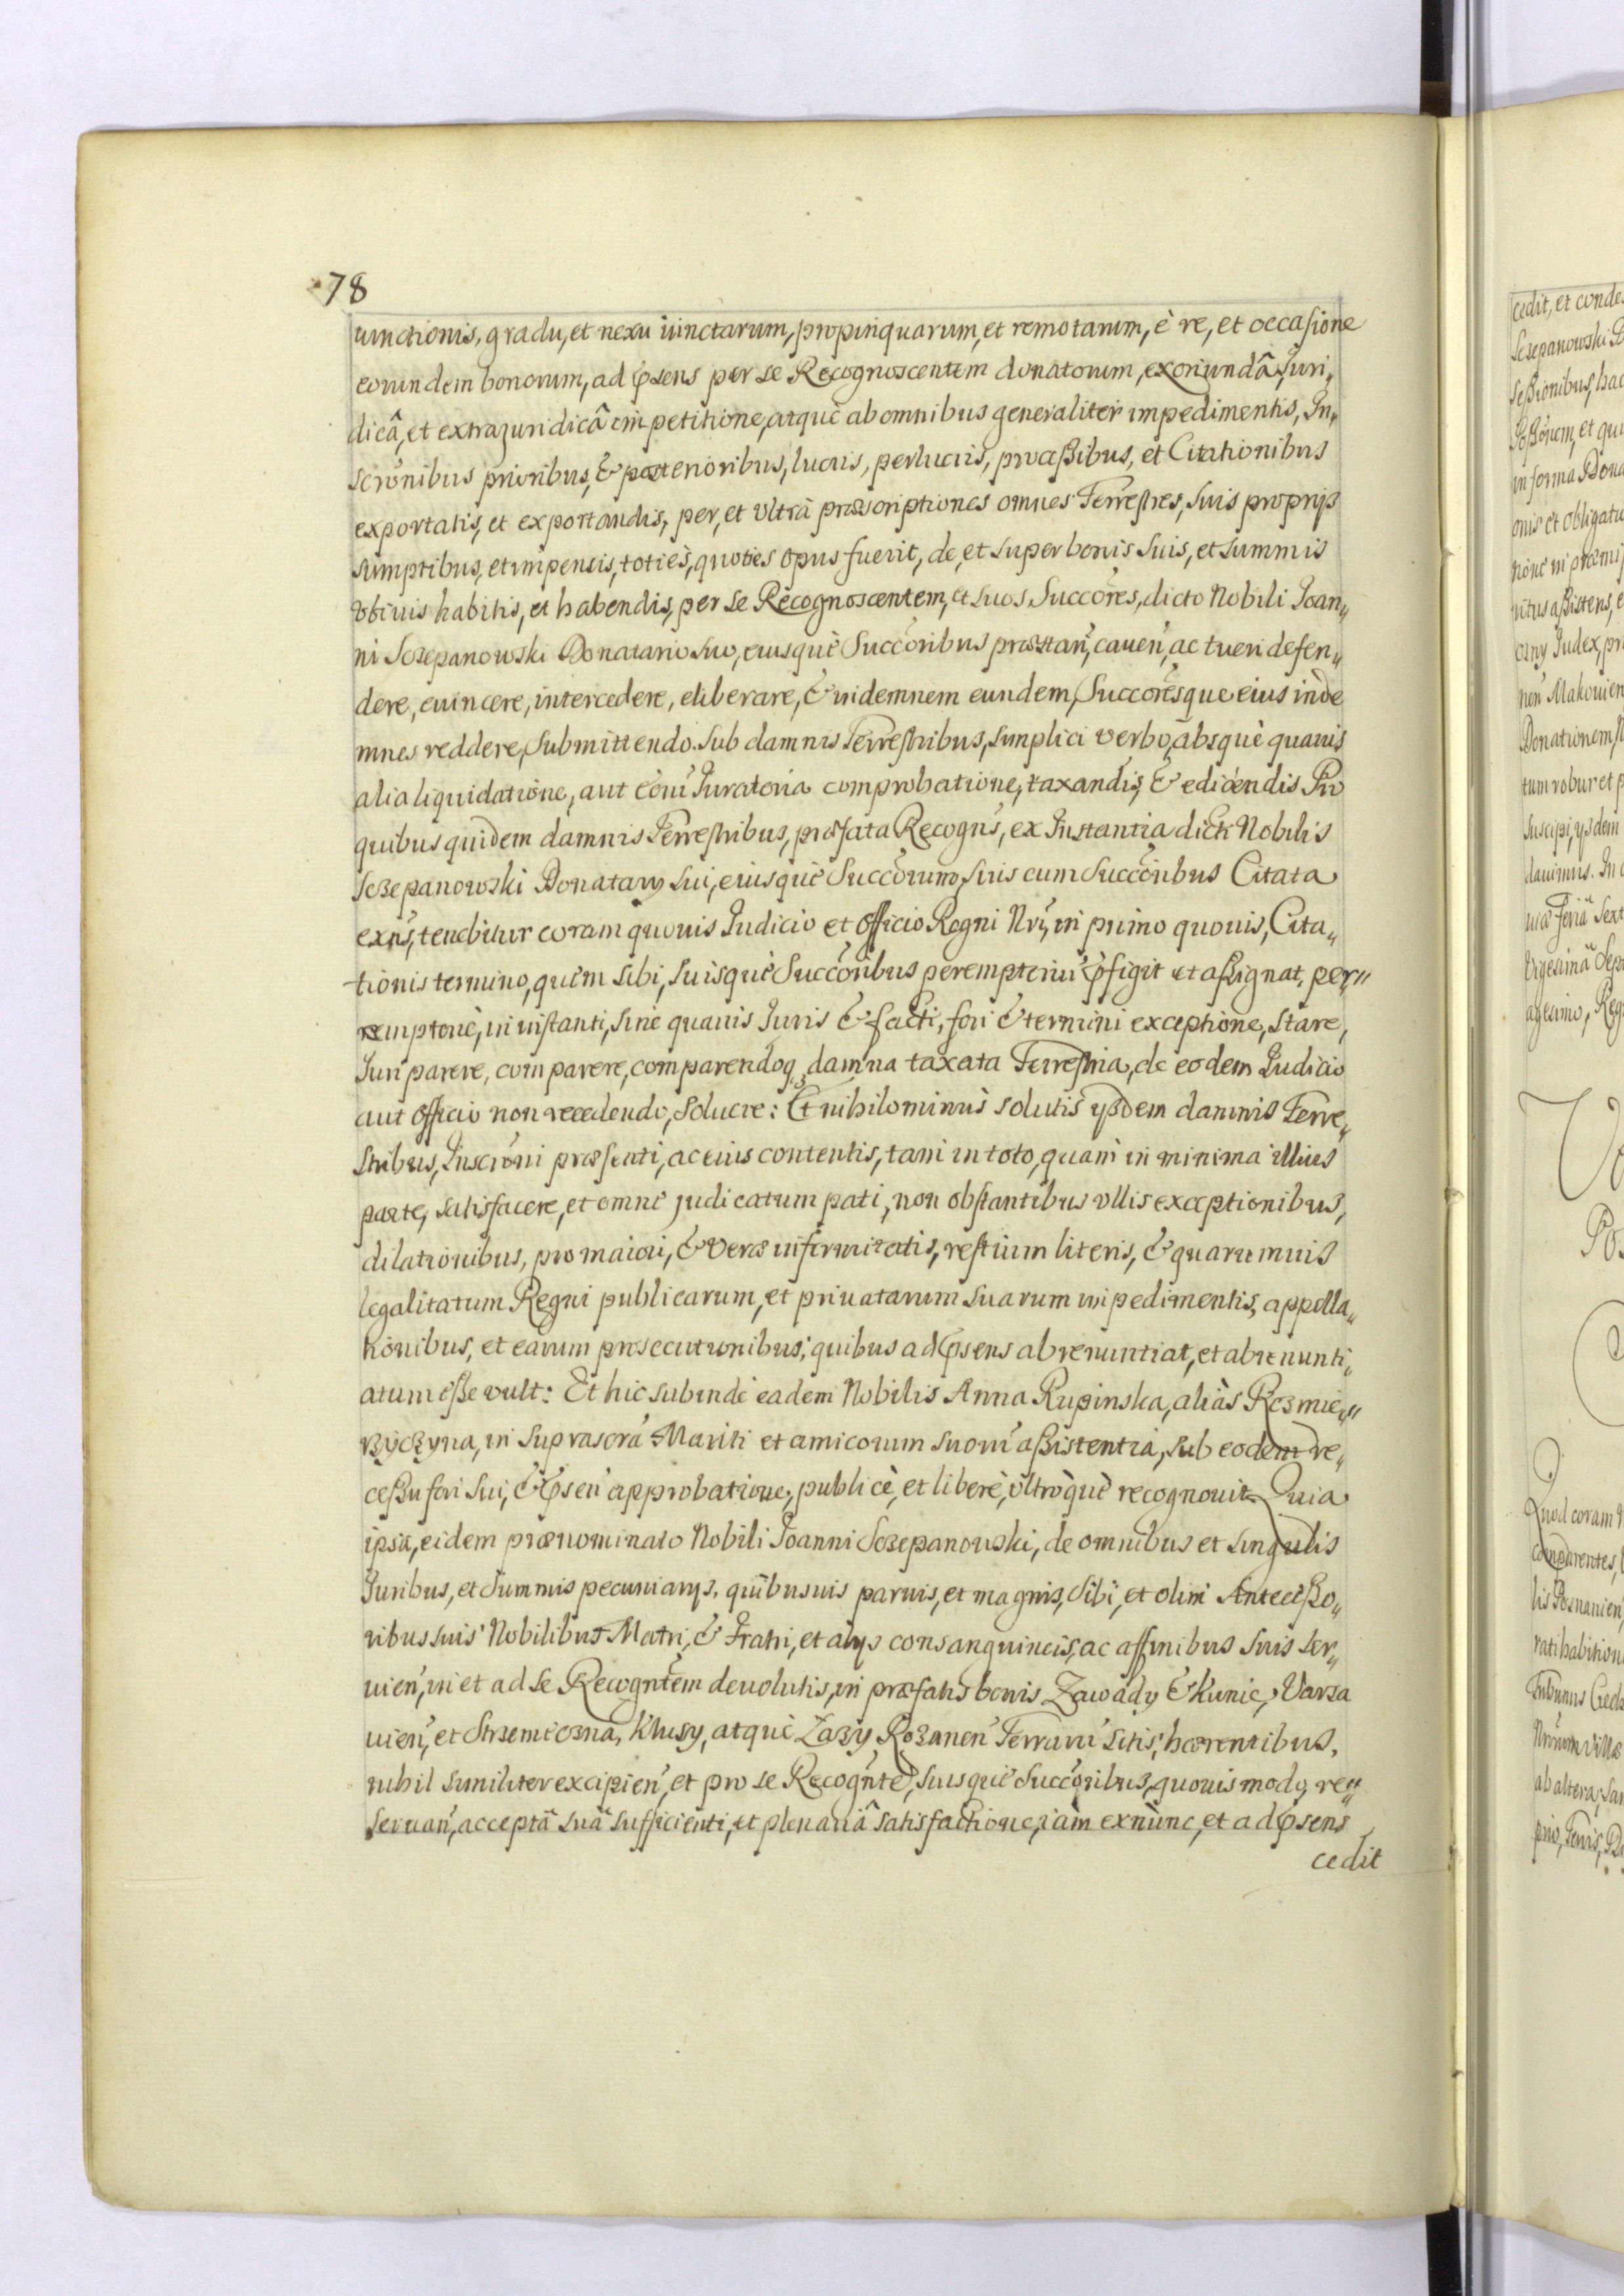 78
iunctionis, gradu, et nexu iunctarum, propinquarum, et remotarum, è re, et occasione
eorundem bonorum, ad psens per se Recognoscentem donatorum, exoriundâ, Juri„
dicâ, et extrajuridicâ impetitione, atquè ab omnibus generaliter impedimentis, In„
scrõnibus prioribus, & posterioribus, lucris, perlucris, processibus, et Citationibus
exportatis, et exportandis, per, et ultrà præscriptiones omnes Terrestres, suis proprijs
sumptibus, et impensis, totiès, quoties opus fuerit, de, et super bonis suis, et summis
vbiuis habitis, et habendis, per se Recognoscentem, et suos Succores, dicto Nobili Joan„
ni Sczepanowski Donatario suo, eiusquè Succoribus præstañ, caueñ, ac tueri defen„
dere, euincere, intercedere, eliberare, & indemnem eundem, Succoresque eius inde
mnes reddere, submittendo. Sub damnis Terrestribus, simplici verbo, absquè quauis
alia liquidatione, aut eoru Juratoria comprobatione, taxandis, & edicendis Pro
quibus quidem damnis Terrestribus, præfata Recogns, ex Instantia dicti Nobilis
Sczepanowski Donatarij sui, eiusquè Succorum, suis cum Succoribus Citata
exns, tenebitur coram quouis Judicio et Officio Regni Nri, in primo quouis, Cita„
tionis termino, quem sibi, suisquè Succoribus peremptoriu pfigit et assignat, per„
emptoriè, in instanti, sine quauis Juris & facti, fori & termini exceptione, stare,
Juri parere, comparere, comparendoq, damna taxata Terrestria, de eodem Judicio
aut Officio non recedendo, soluere: Et nihilominùs solutis ijsdem damnis Terre„
stribus, Inscrõni præsenti, ac eius contentis, tam in toto, quam in minima illius
parte, satisfacere, et omne judicatum pati, non obstantibus vllis exceptionibus,
dilationibus, pro maiori, & vera infirmitatis, restium literis, & quarumuis
legalitatum Regni publicarum, et priuatarum suarum impedimentis, appella„
tionibus, et earum prosecutionibus; quibus ad psens abrenuntiat, et abrenunti„
atum esse vult: Et hic subindè eadem Nobilis Anna Rupinska, aliàs Rozmie„
rzyczyna, in suprascra Mariti et amicorum suoru assistentia, sub eodem re„
cessu fori sui, & pseñ approbatione, publicè, et liberè, vltròquè recognouit. Quia
ipsa, eidem prænominato Nobili Joanni Sczepanowski, de omnibus et singulis
Juribus, et summis pecuniarijs, quibusuis paruis, et magnis, sibi, et olim Antecesso„
ribus suis Nobilibus Matri, & Fratri, et alijs consanguineis, ac affinibus suis ser„
uieñ, in et ad se Recogntem deuolutis, in præfatis bonis Zawady & Kunic, Varsa
uieñ, et Strzemiczna, Klusy, atquè Zazy Rozaneñ Terraru sitis, hærentibus,
nihil similiter excipieñ, et pro se Recognte, suisquè Succoribus, quouis modo, re„
seruañ, acceptâ suâ sufficienti, et plenariâ satisfactione, iàm exnunc, et ad psens
cedit